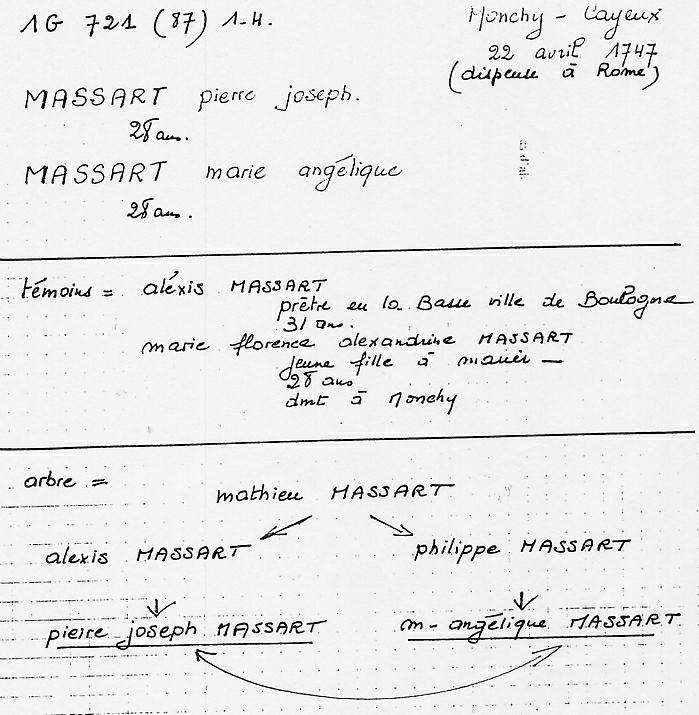 1G 721 (87) 1-4.
Monchy - Cayeux
22 avril 1747
(dispense à Rome)
MASSART pierre joseph.
28 ans.
MASSART marie angélique
28 ans.
témoins = aléxis MASSART
prêtre en la Basse ville de Boulogne
31 ans.
marie florence alexandrine MASSART
jeune fille à marier -
28 ans
dmt à Monchy
arbre =
mathieu MASSART
alexis MASSART philippe MASSART
pierre joseph MASSART m-angélique MASSART